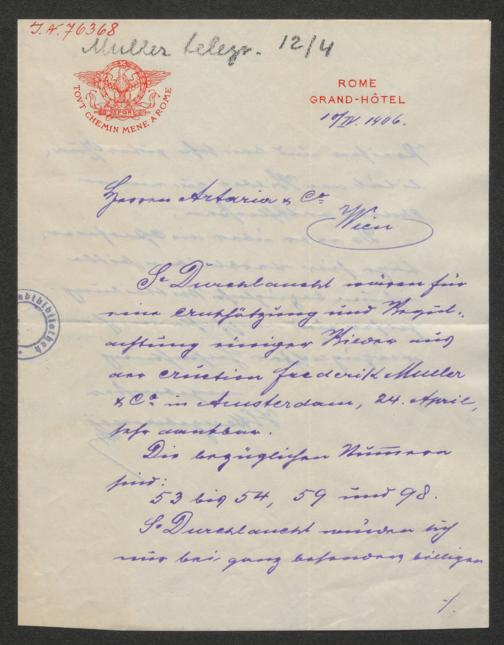 I.N. 76368
Muller telegr. 12/4
TOUT CHEMIN MENE A ROME
ROME
GRAND-HÔTEL
10/IV. 1906.
Herren Artaria & Co
Wien
Sr Durchlaucht wären für
eine und
einiger Bilder aus
der Auction Frederik Muller
& Co in Amsterdam, 24. April,
sehr dankbar.
Die bezüglichen Nummern
sind:
53 bis 54, 59 und 98.
Sr Durchlaucht würden sich
nur bei ganz besonders billigen
./.